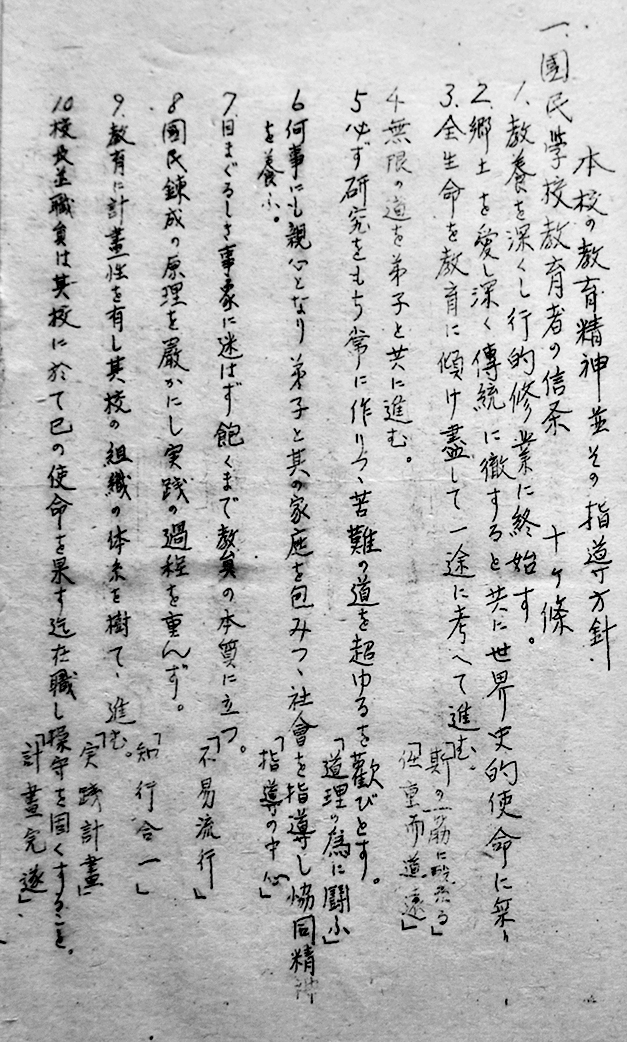 本校の教育精神並その指導方針
一、國民學校教育者の信条 十ヶ條
1.教養を深くし行的修業に終始す。
2.郷土を愛し深く傳統に徹すると共に世界史的使命に
3.全生命を教育に傾け盡して一途に考へて進む。
「斯の一筋に
4.無限の道を弟子と共に進む。
「任重而道遠」
5.必ず研究をもち常に作りつゝ苦難の道を超ゆるを歡びとす。
「道理の為に闘ふ」
6何事にも親心となり弟子と其の家庭を包みつゝ社會を指導し協同精神
を養ふ。
「指導の中心」
7.目まぐるしき事象に迷はず飽くまで教員の本質に立つ。
「不易流行」
8國民錬成の原理を嚴かにし実践の過程を重んず。
「知行合一」
9.教育に計畫性を有し其校の組織の体系を樹てゝ進む。
「実践計畫」
10校長並職員は其校に於て己の使命を果す迄在職し操守を固くすること。
「計畫完遂」